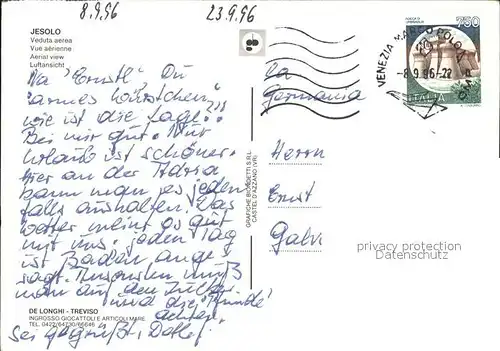 8.9.96
23.9.96
JESOLO
Veduta aerea
Vue aérienne
Aerial view
Luftansicht
Na "Ernstl" Du
"armes Würstchen"
wie ist die Lage??
Bei mir gut. Nur
Urlaub ist schöner.
Hier an der Adria
kann man es jeden-
falls aushalten. Das
Wetter meint es gut
mit uns. Jeden Tag
ist Baden ange-
sagt. Ansonsten muß
man auf den
und die "Pfunde"
achten.
Sei gegrüßt, Detlef
DE LONGHI - TREVISO
INGROSSO GIOCATTOLI E ARTICOLI MARE
TEL. 0422/64730/66646
GRAFICHE BIONDETTI S.R.L.
CASTEL D'AZZANO (VR)
VENEZIA MARCO POLO A.
-8.9.96-22
750
ITALIA
Germania
Herrn
Ernst
Galv
privacy protection
Datenschutz